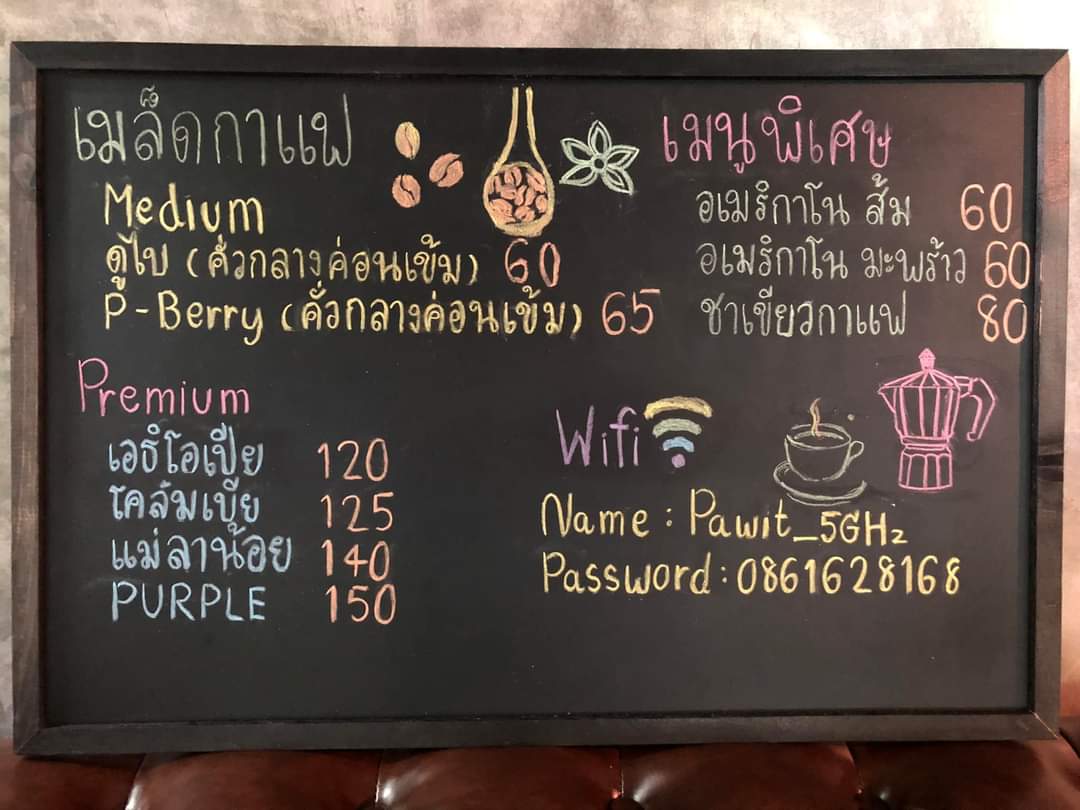 เมล็ดกาแฟ
Medium
ดูไบ (คั่วกลางค่อนเข้ม) 60
P-Berry (คั่วกลางค่อนเข้ม) 65
Premium
เอธิโอเปีย 120
โคลัมเบีย 125
แม่ลาน้อย 140
PURPLE 150
เมนูพิเศษ
อเมริกาโน ส้ม 60
อเมริกาโน มะพร้าว 60
ชาเขียวกาแฟ 80
Wifi
Name : Pawit_5GHz
Password : 0861628168